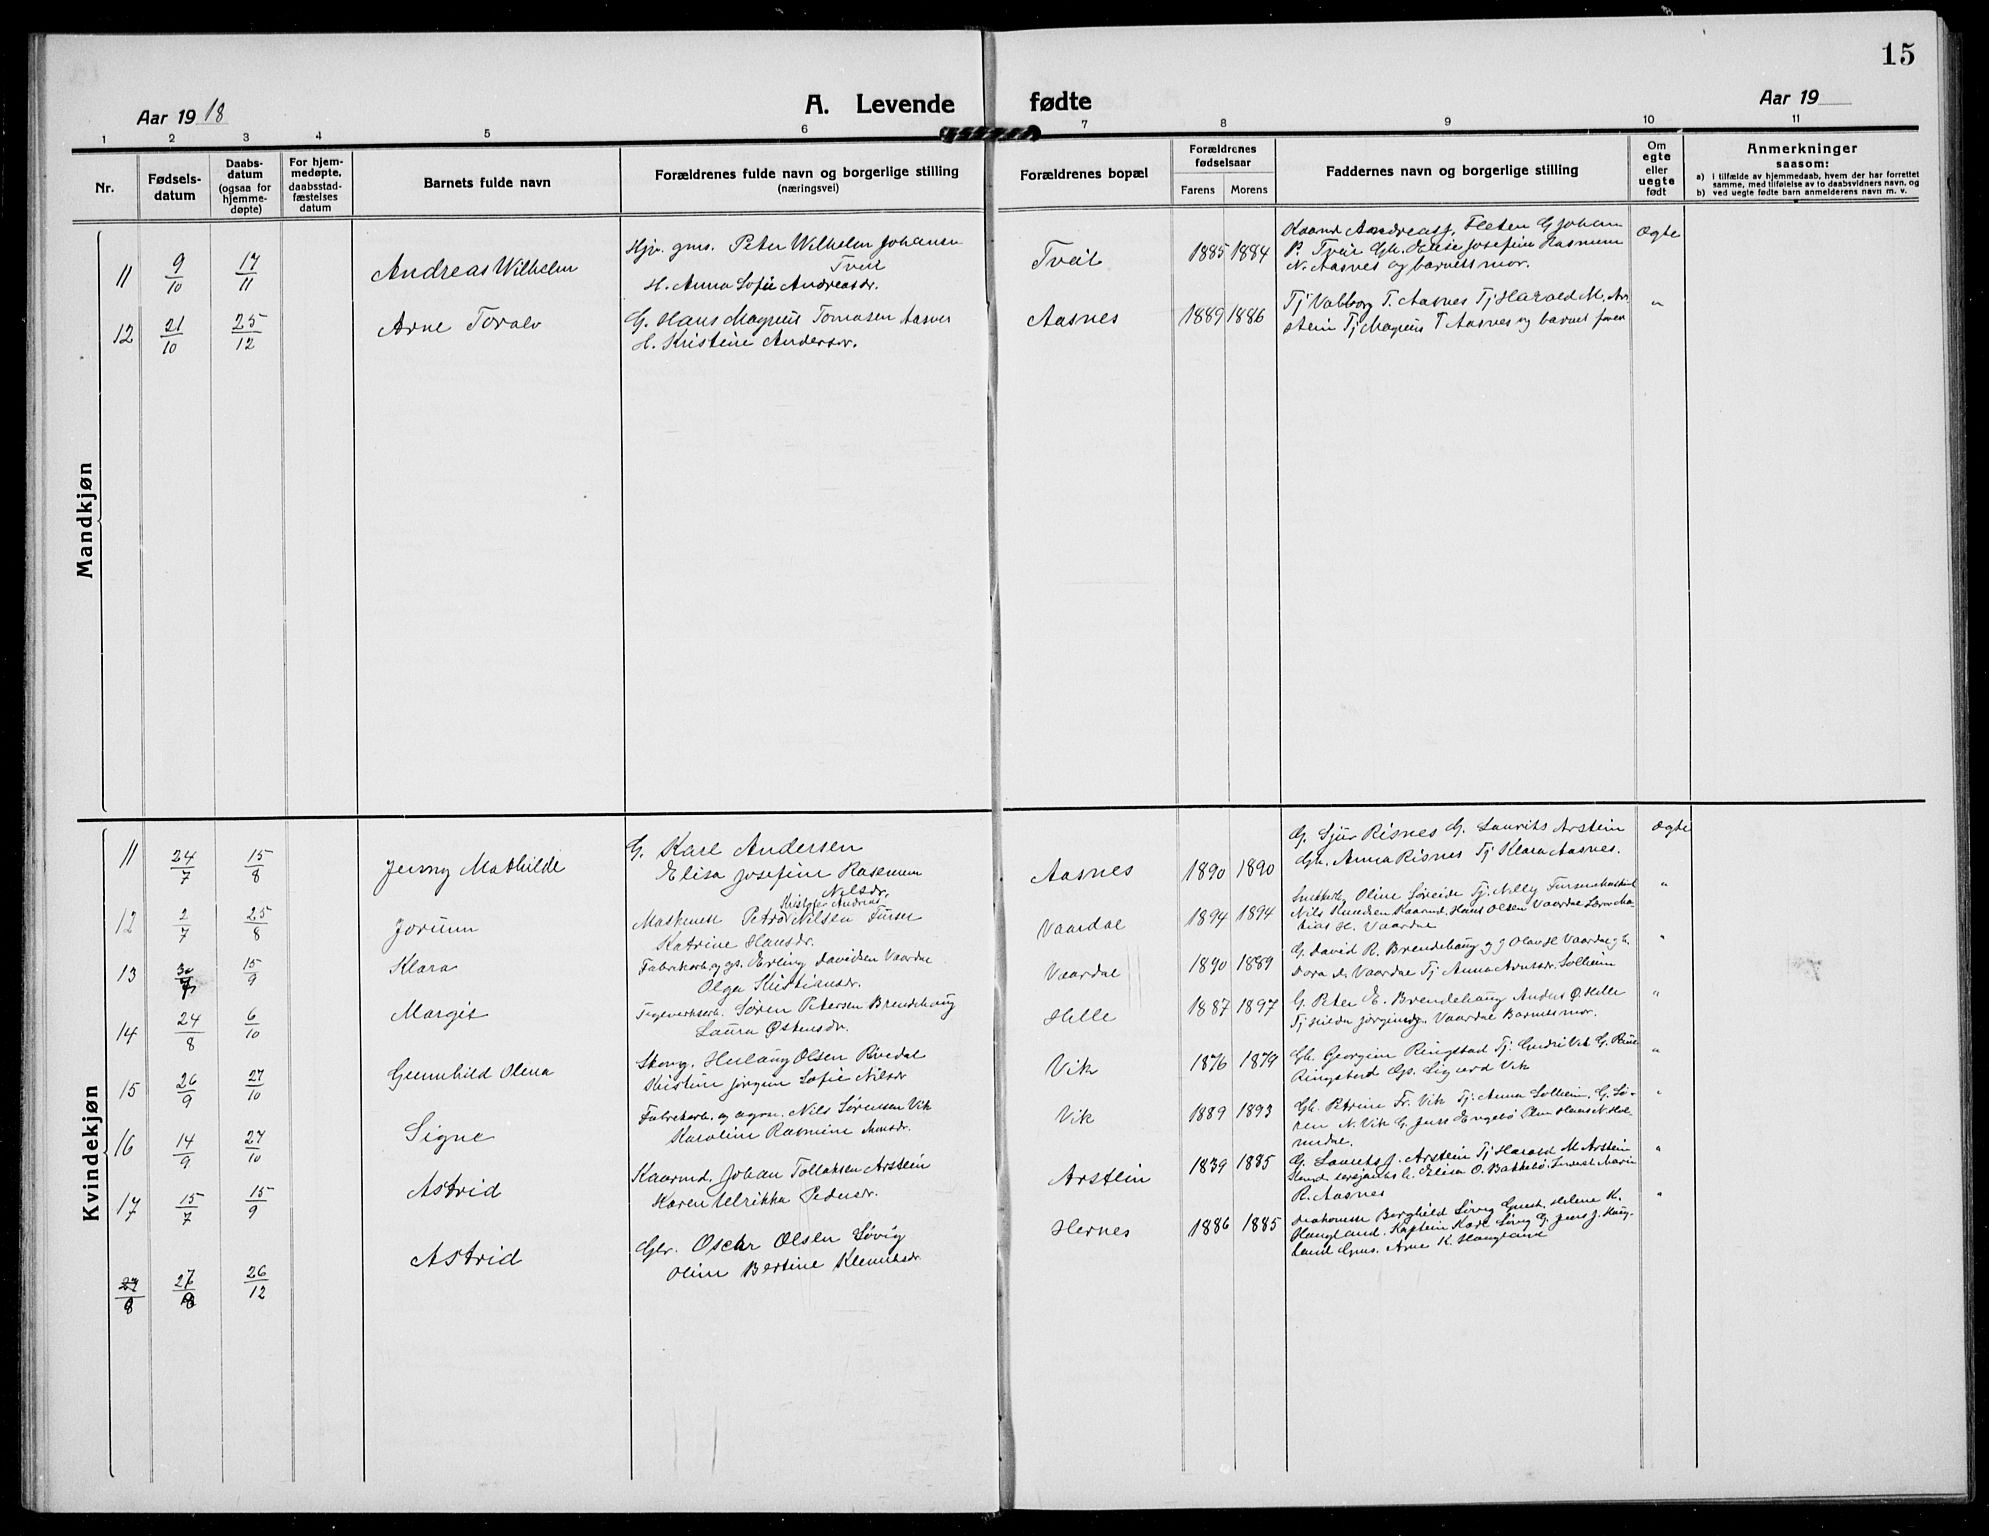 15
Aar 1918
A. Levende fødte
Aar 19
1 2 3 4 5 6 7 8 9 10 11
Nr.
Fødsels-
datum
Daabs-
datum
(ogsaa for
hjemme-
døpte)
For hjem-
medøpte,
daabsstad-
fæstelses
datum
Barnets fulde navn
Forældrenes fulde navn og borgerlige stilling
(næringsvei)
Forældrenes bopæl
Forældrenes
fødselsaar
Farens Morens
Faddernes navn og borgerlige stilling
Om
egte
eller
uegte
født
Anmerkninger
saasom:
a) i tilfælde av hjemmedaab, hvem der har forrettet
samme, med tilføielse av to daabsvidners navn, og
b) ved uegte fødte barn anmelderens navn m. v.
Mandkjøn
11 9/10 17/11 Andreas Wilhelm
Hjv. gms. Peter Wilhelm Johansen
Tveit
H. Anna Sofie Andreasdr.
Tveit 1885 1884
Kaarmd Andreas J. Fleten G Johan
P. Tveit Gh. Elise Josefine Rasmum
N. Aasnes og barnets mor.
Ægte
12 21/10 25/12 Arne Toralv
G. Hans Magnus Tomasen Aasnes
H. Kristine Andersdr.
Aasnes 1889 1886
Tj Valborg T. Aasnes Tj Harald M. Ar-
stein Tj Magnus T Aasnes og barnets forer
"
Kvindekjøn
11 24/7 15/8 Jenny Mathilde
G. Karl Andersen
Elisa Josefine Rasmum
Nilsdr.
Aasnes 1890 1890
G. Sjur Risnes G. Laurits Arstein
Gh. Anna Risnes Tj Klara Aasnes.
Ægte
12 2/7 25/8 Jorunn
Kristofer Andreas
Maskinist Petra Nilsen Furse
Katrine Hansdr.
Vaardal 1894 1894
Oline Søreide Tj. Nelly
Nils Knudsen Kaarmd. Hans Olsen Vaardal
H. Vaardal
"
13 30/7 15/9 Klara
Fabrikarb. og gs. Erling Davidsen Vaardal
Olga Kristiansdr.
Vaardal 1890 1889
G. David R. Brendehaug og G Olav H Vaardal gh.
Dora D. Vaardal Tj Anna Arnesdr. Solheim
"
14 24/8 6/10 Margit
Teglverksarb. Søren Petersen Brendehaug
Laura Østensdr.
Helle 1887 1897
G. Peter E. Brendehaug Anders Ø. Helle
Tj Hilda Jørginedg. Vaardal Barnets mor.
"
15 26/9 27/10 Gunnhild Olena
Skomg. Herlaug Olsen Rivedal
Kristine Jørgine Sofie Nilsdr
Vik 1876 1879
Gh. Georgine Ringstad Tj: Gudri Vik G.
Ringstad Gs. Sigurd Vik
"
16 14/9 27/10 Signe
Fabrikarb. og agm. Nils Sørensen Vik
Karoline Rasmine Arnsdr.
Vik 1889 1893
Gh. Petrine Fr. Vik Tj: Anna Solheim. G. Sø-
ren N. Vik G. Jens Engebø Hans N. Hol-
medal.
"
17 15/7 15/9 Astrid
Kaarmd. Johan Tollaksen Arstein
Karen Ulrikka Pedersdr.
Arstein 1839 1885
G. Laurits J. Arstein Tj Harald M Arstein
Elisa O. Bakkebø
R. Aasnes
"
27/8 27/8 26/12 Astrid
Gbr. Oscar Olsen Løvig
Oline Bertine Klemetsdr
Hernes 1886 1885
Berghild Løvig Helene K.
Haugland. Kaptein Karl Løvig G. Jens J. Haug-
land Gms. Arne K. Haugland
"